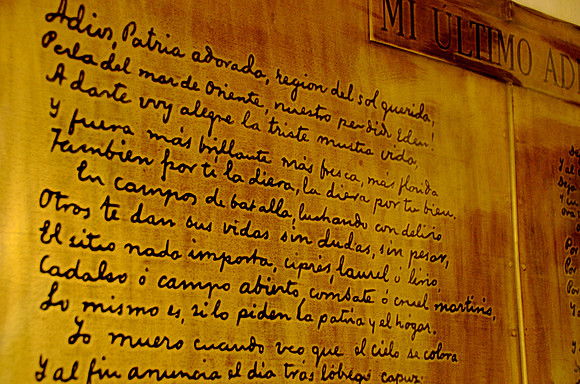 MI ÚLTIMO AD
Adios, Patria adorada, region del sol querida,
Perla del mar de Oriente, nuestro perdido Eden!
A darte voy alegre la triste mustia vida,
Y fuera más brillante más fresca, más florida
Tambien por ti la diera, la diera por tu bien.
En campos de batalla, luchando con delirio
Otros te dan sus vidas sin dudas, sin pesar,
El sitio nada importa, ciprés, laurel ó lirio,
Cadalso ó campo abierto, combate ó cruel martirio,
Lo mismo es, si lo piden la patria y el hogar.
Yo muero cuando veo que el cielo se colora
Y al fin anuncia el día trás lóbrego capuz;